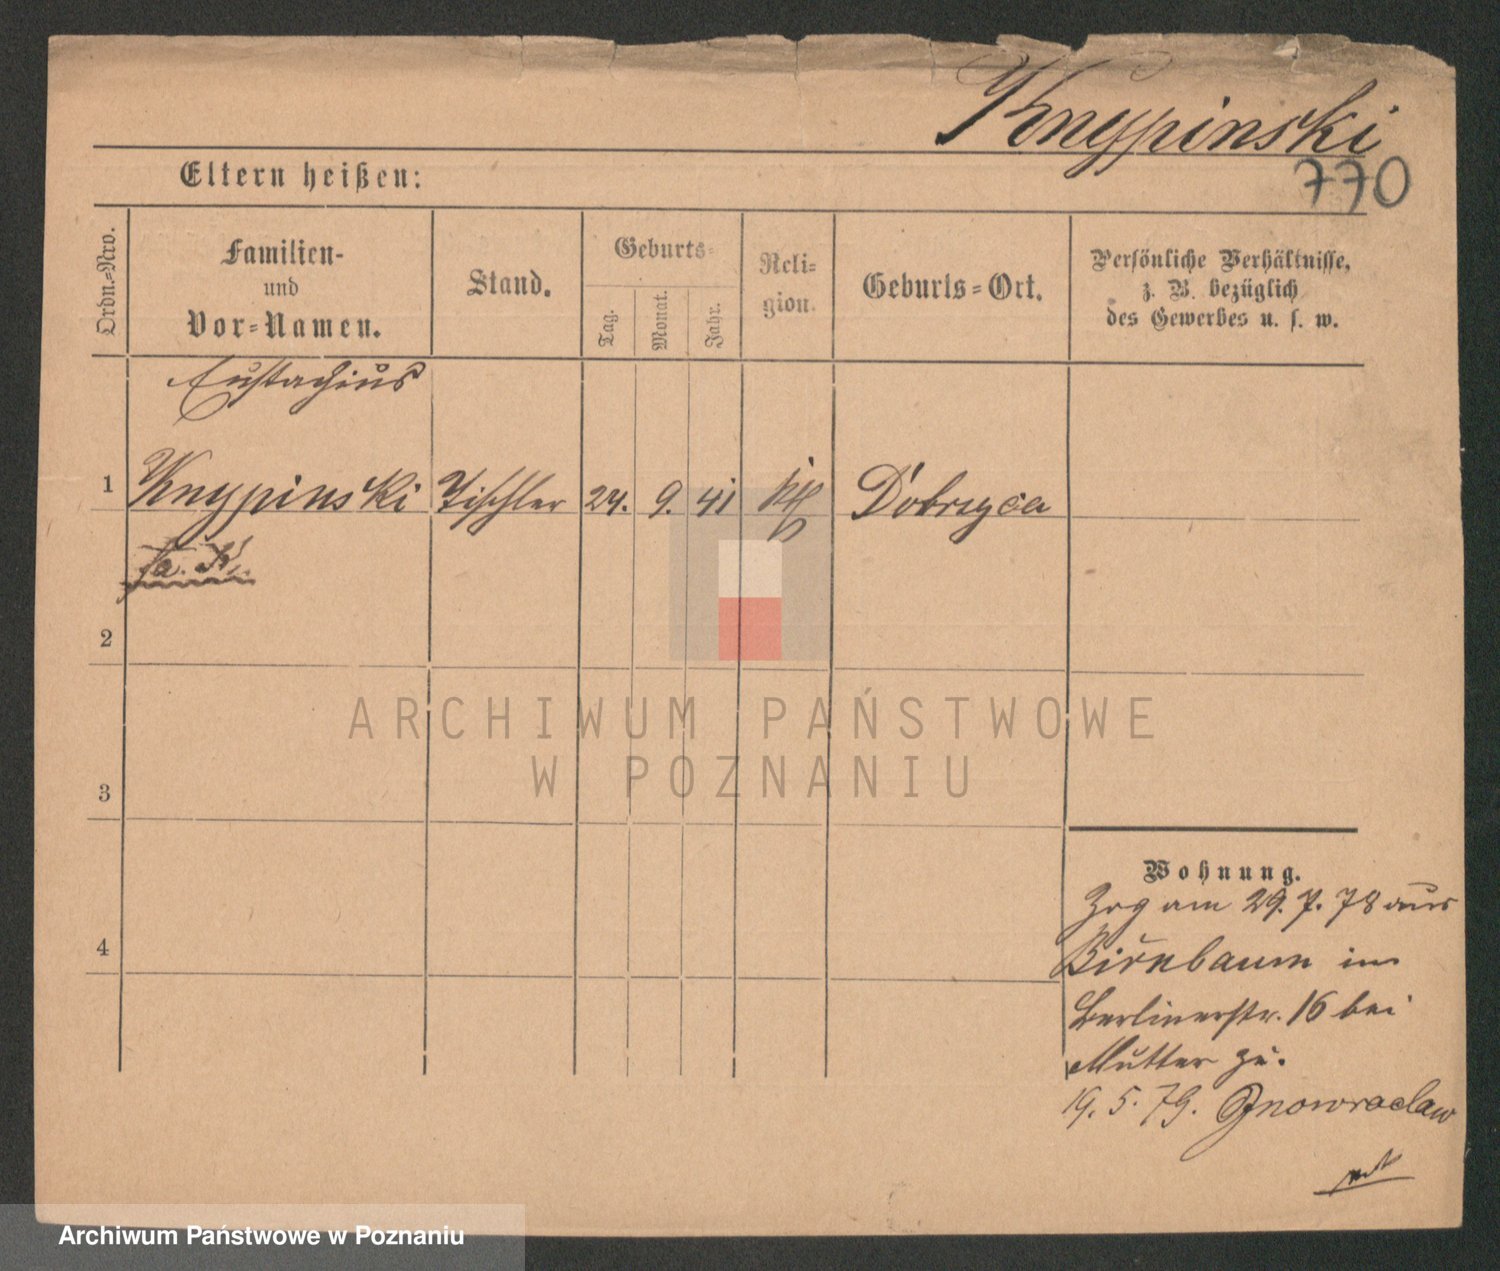 Knypinski
770
Eltern heißen:
Ordn.=Nro.
Familien-
und
Vor=Namen.
Stand.
Geburts=
Tag.
Monat.
Jahr.
Reli=
gion.
Geburts=Ort.
Persönliche Verhältnisse,
z. B. bezüglich
des Gewerbes u. s. w.
Eustachius
1 Knypinski Tischler 9. 41 Dobrzyca
2
3
4
Wohnung.
Zog am 29. 7. 78 aus
Birnbaum in
Berlinerstr. 16 bei
Mutter zu.
19. 5. 79. Inowraclaw
ARCHIWUM PAŃSTWOWE
W POZNANIU
Archiwum Państwowe w Poznaniu